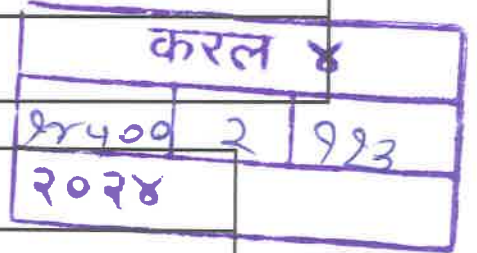 करल ४
१४५०० २ ११३
२०२४